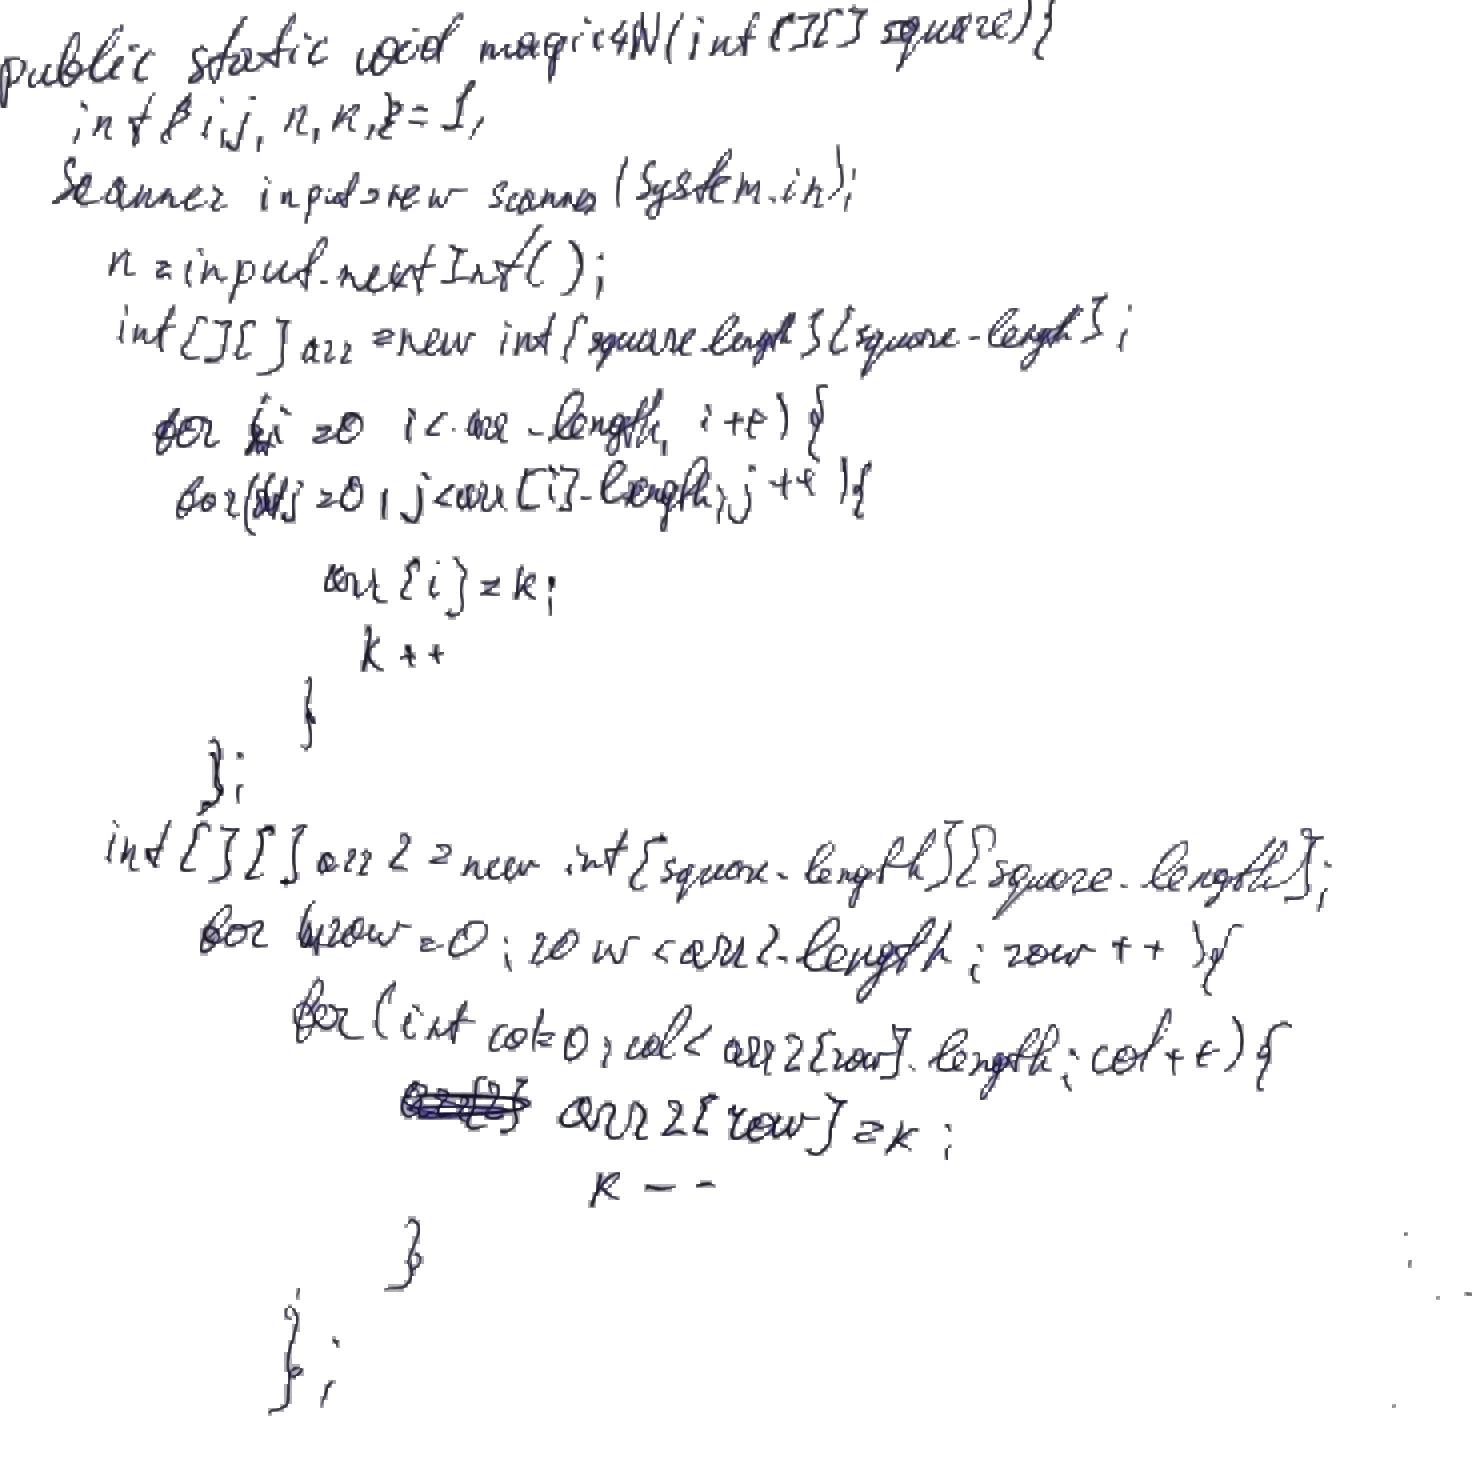 public static void magic4N(int[][] square){
int i,j, n, k, z=1,
Scanner input=new scanner(System.in);
n=input.nextInt();
int[][]arr=new int[square.length][square.length];
for (i=0 i<arr.length, i++){
for(j=0, j<arr[i].length;j++){
arr[i]=k;
k++
}
};
int[][]arr2=new int[square.length][square.length];
for (row=0;row<arr2.length;row++){
for(int col=0;col<arr2[row].length;col++){
arr2[row]=k;
k--
}
};